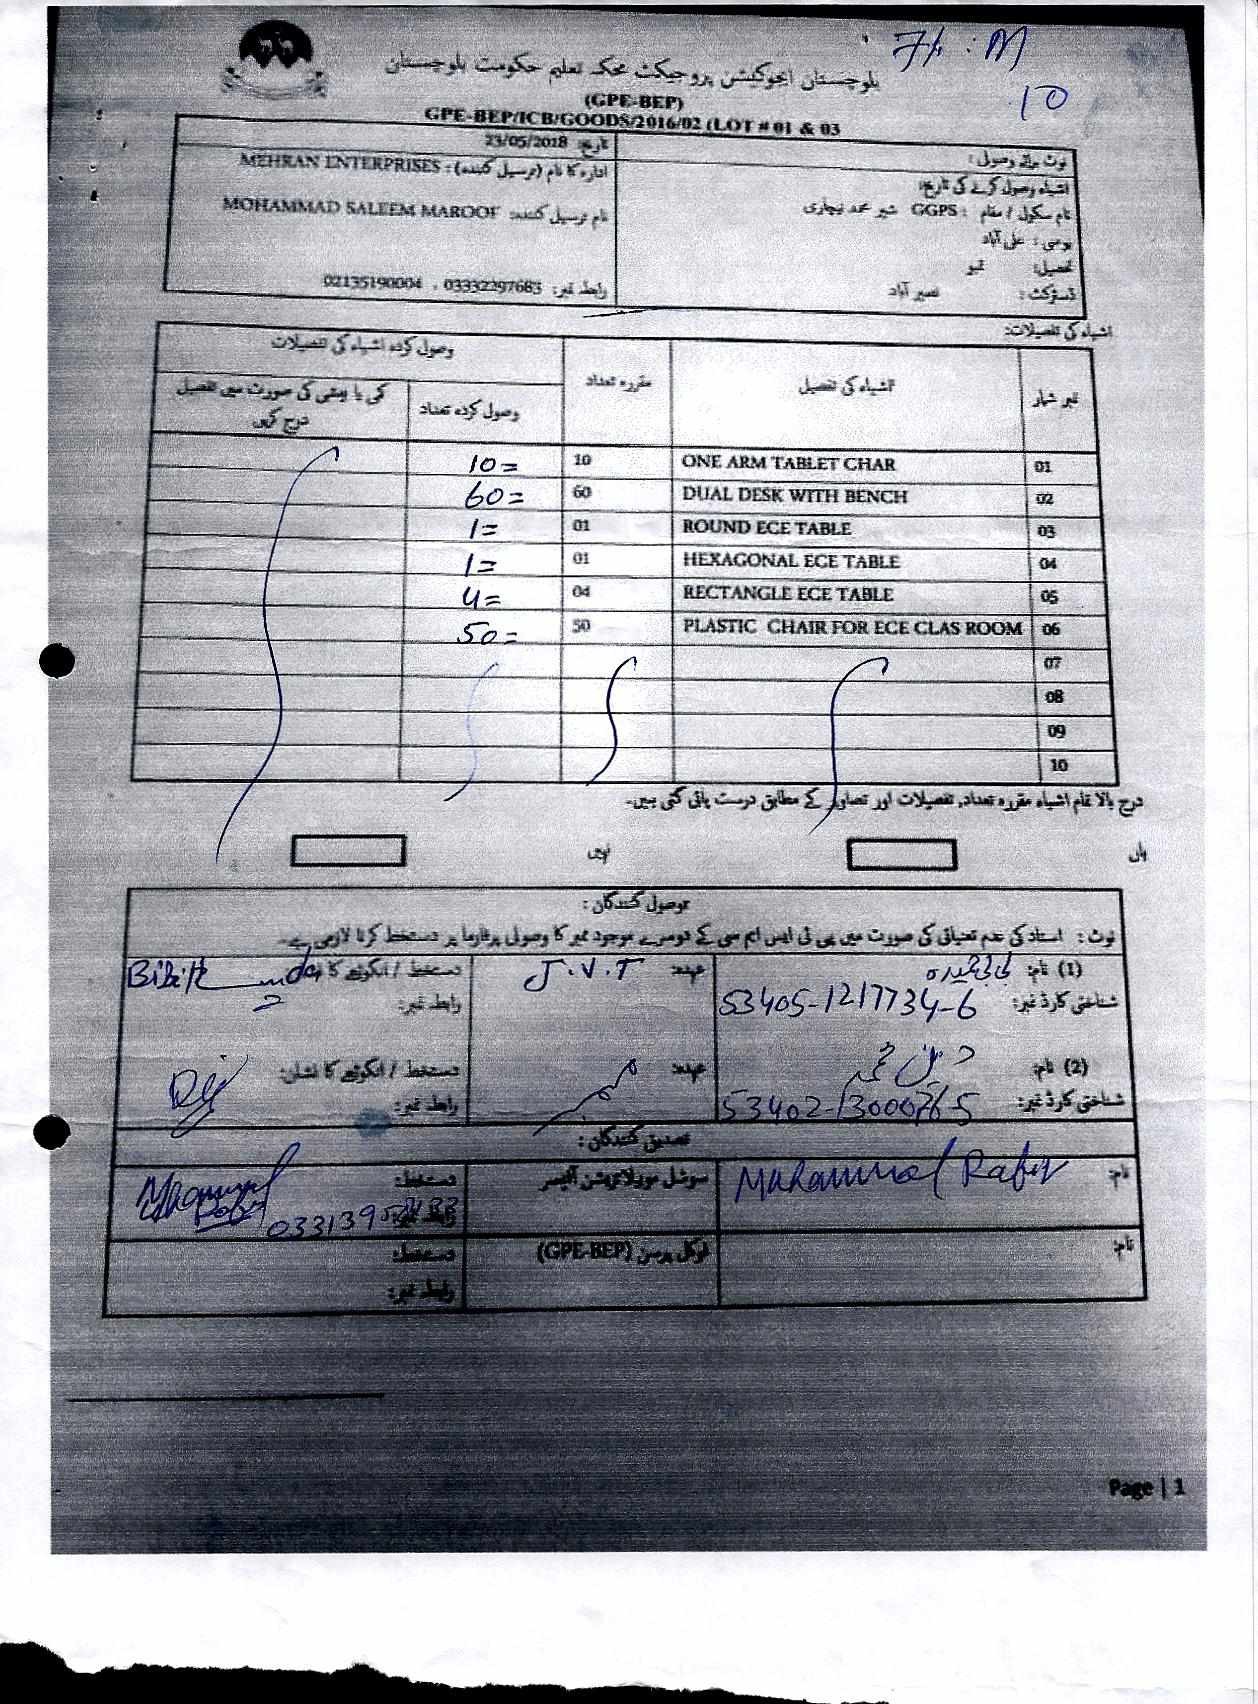 7h : M
10
بلوچستان ایجوکیشن پروجیکٹ محکمہ تعلیم حکومت بلوچستان
(GPE-BEP)
GPE-BEP/ICB/GOODS/2016/02 (LOT # 01 & 03
نوٹ برائے وصولی :
تاریخ: 23/05/2018
اشیاء وصول کرنے کی تاریخ:
ادارہ کا نام (ترسیل کنندہ) : MEHRAN ENTERPRISES
نام سکول / مقام : GGPS شیر محمد بیچاری
نام ترسیل کنندہ: MOHAMMAD SALEEM MAROOF
یوسی : علی آباد
تحصیل: تمبو
ڈسٹرکٹ : نصیر آباد
رابطہ نمبر: 03332297683 , 02135190004
اشیاء کی تفصیلات:
نمبر شمار
اشیاء کی تفصیل
مقررہ تعداد
وصول کردہ اشیاء کی تفصیلات
وصول کردہ تعداد
کمی یا بیشی کی صورت میں تفصیل درج کریں
01 ONE ARM TABLET CHAR 10 10=
02 DUAL DESK WITH BENCH 60 60=
03 ROUND ECE TABLE 01 1=
04 HEXAGONAL ECE TABLE 01 1=
05 RECTANGLE ECE TABLE 04 4=
06 PLASTIC CHAIR FOR ECE CLAS ROOM 50 50=
07
08
09
10
درج بالا تمام اشیاء مقررہ تعداد, تفصیلات اور تصاویر کے مطابق درست پائی گئی ہیں۔
ہاں
نہیں
موصول کنندگان :
نوٹ : استاد کی عدم تعیناتی کی صورت میں پی ٹی ایس ایم سی کے دوسرے موجود ممبر کا وصولی پرفارما پر دستخط کرنا لازمی ہے۔
(1) نام:
عہدہ: J.V.T
دستخط / انگوٹھے کا نشان:
شناختی کارڈ نمبر: 53405-1217734-6
رابطہ نمبر:
(2) نام:
عہدہ:
دستخط / انگوٹھے کا نشان:
شناختی کارڈ نمبر:
رابطہ نمبر:
تصدیق کنندگان :
نام: Muhammad Rafiq
سوشل موبلائزیشن آفیسر
دستخط:
رابطہ نمبر:
نام:
فوکل پرسن (GPE-BEP)
دستخط:
رابطہ نمبر:
Page | 1